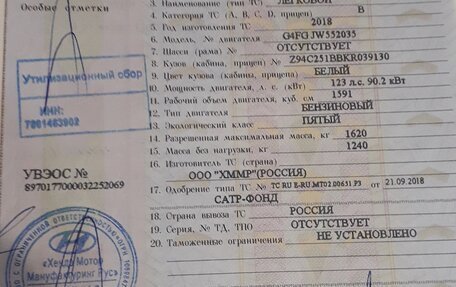 Особые отметки
Утилизационный сбор
ИНН:
7801463902
УВЭОС №
8970177000032252069
«Хендэ Мотор
Мануфактуринг Рус»
3. Наименование (тип ТС) ЛЕГКОВОЙ
4. Категория ТС (A, B, C, D, прицеп) B
5. Год изготовления ТС 2018
6. Модель, № двигателя G4FG JW552035
7. Шасси (рама) № ОТСУТСТВУЕТ
8. Кузов (кабина, прицеп) № Z94C251BBKR039130
9. Цвет кузова (кабины, прицепа) БЕЛЫЙ
10. Мощность двигателя, л. с. (кВт) 123 л.с. 90.2 кВт
11. Рабочий объем двигателя, куб. см 1591
12. Тип двигателя БЕНЗИНОВЫЙ
13. Экологический класс ПЯТЫЙ
14. Разрешенная максимальная масса, кг 1620
15. Масса без нагрузки, кг 1240
16. Изготовитель ТС (страна)
ООО "ХММР"(РОССИЯ)
17. Одобрение типа ТС № ТС RU E-RU.MT02.00651.P3 от 21.09.2018
САТР-ФОНД
18. Страна вывоза ТС РОССИЯ
19. Серия, № ТД, ТПО ОТСУТСТВУЕТ
20. Таможенные ограничения НЕ УСТАНОВЛЕНО